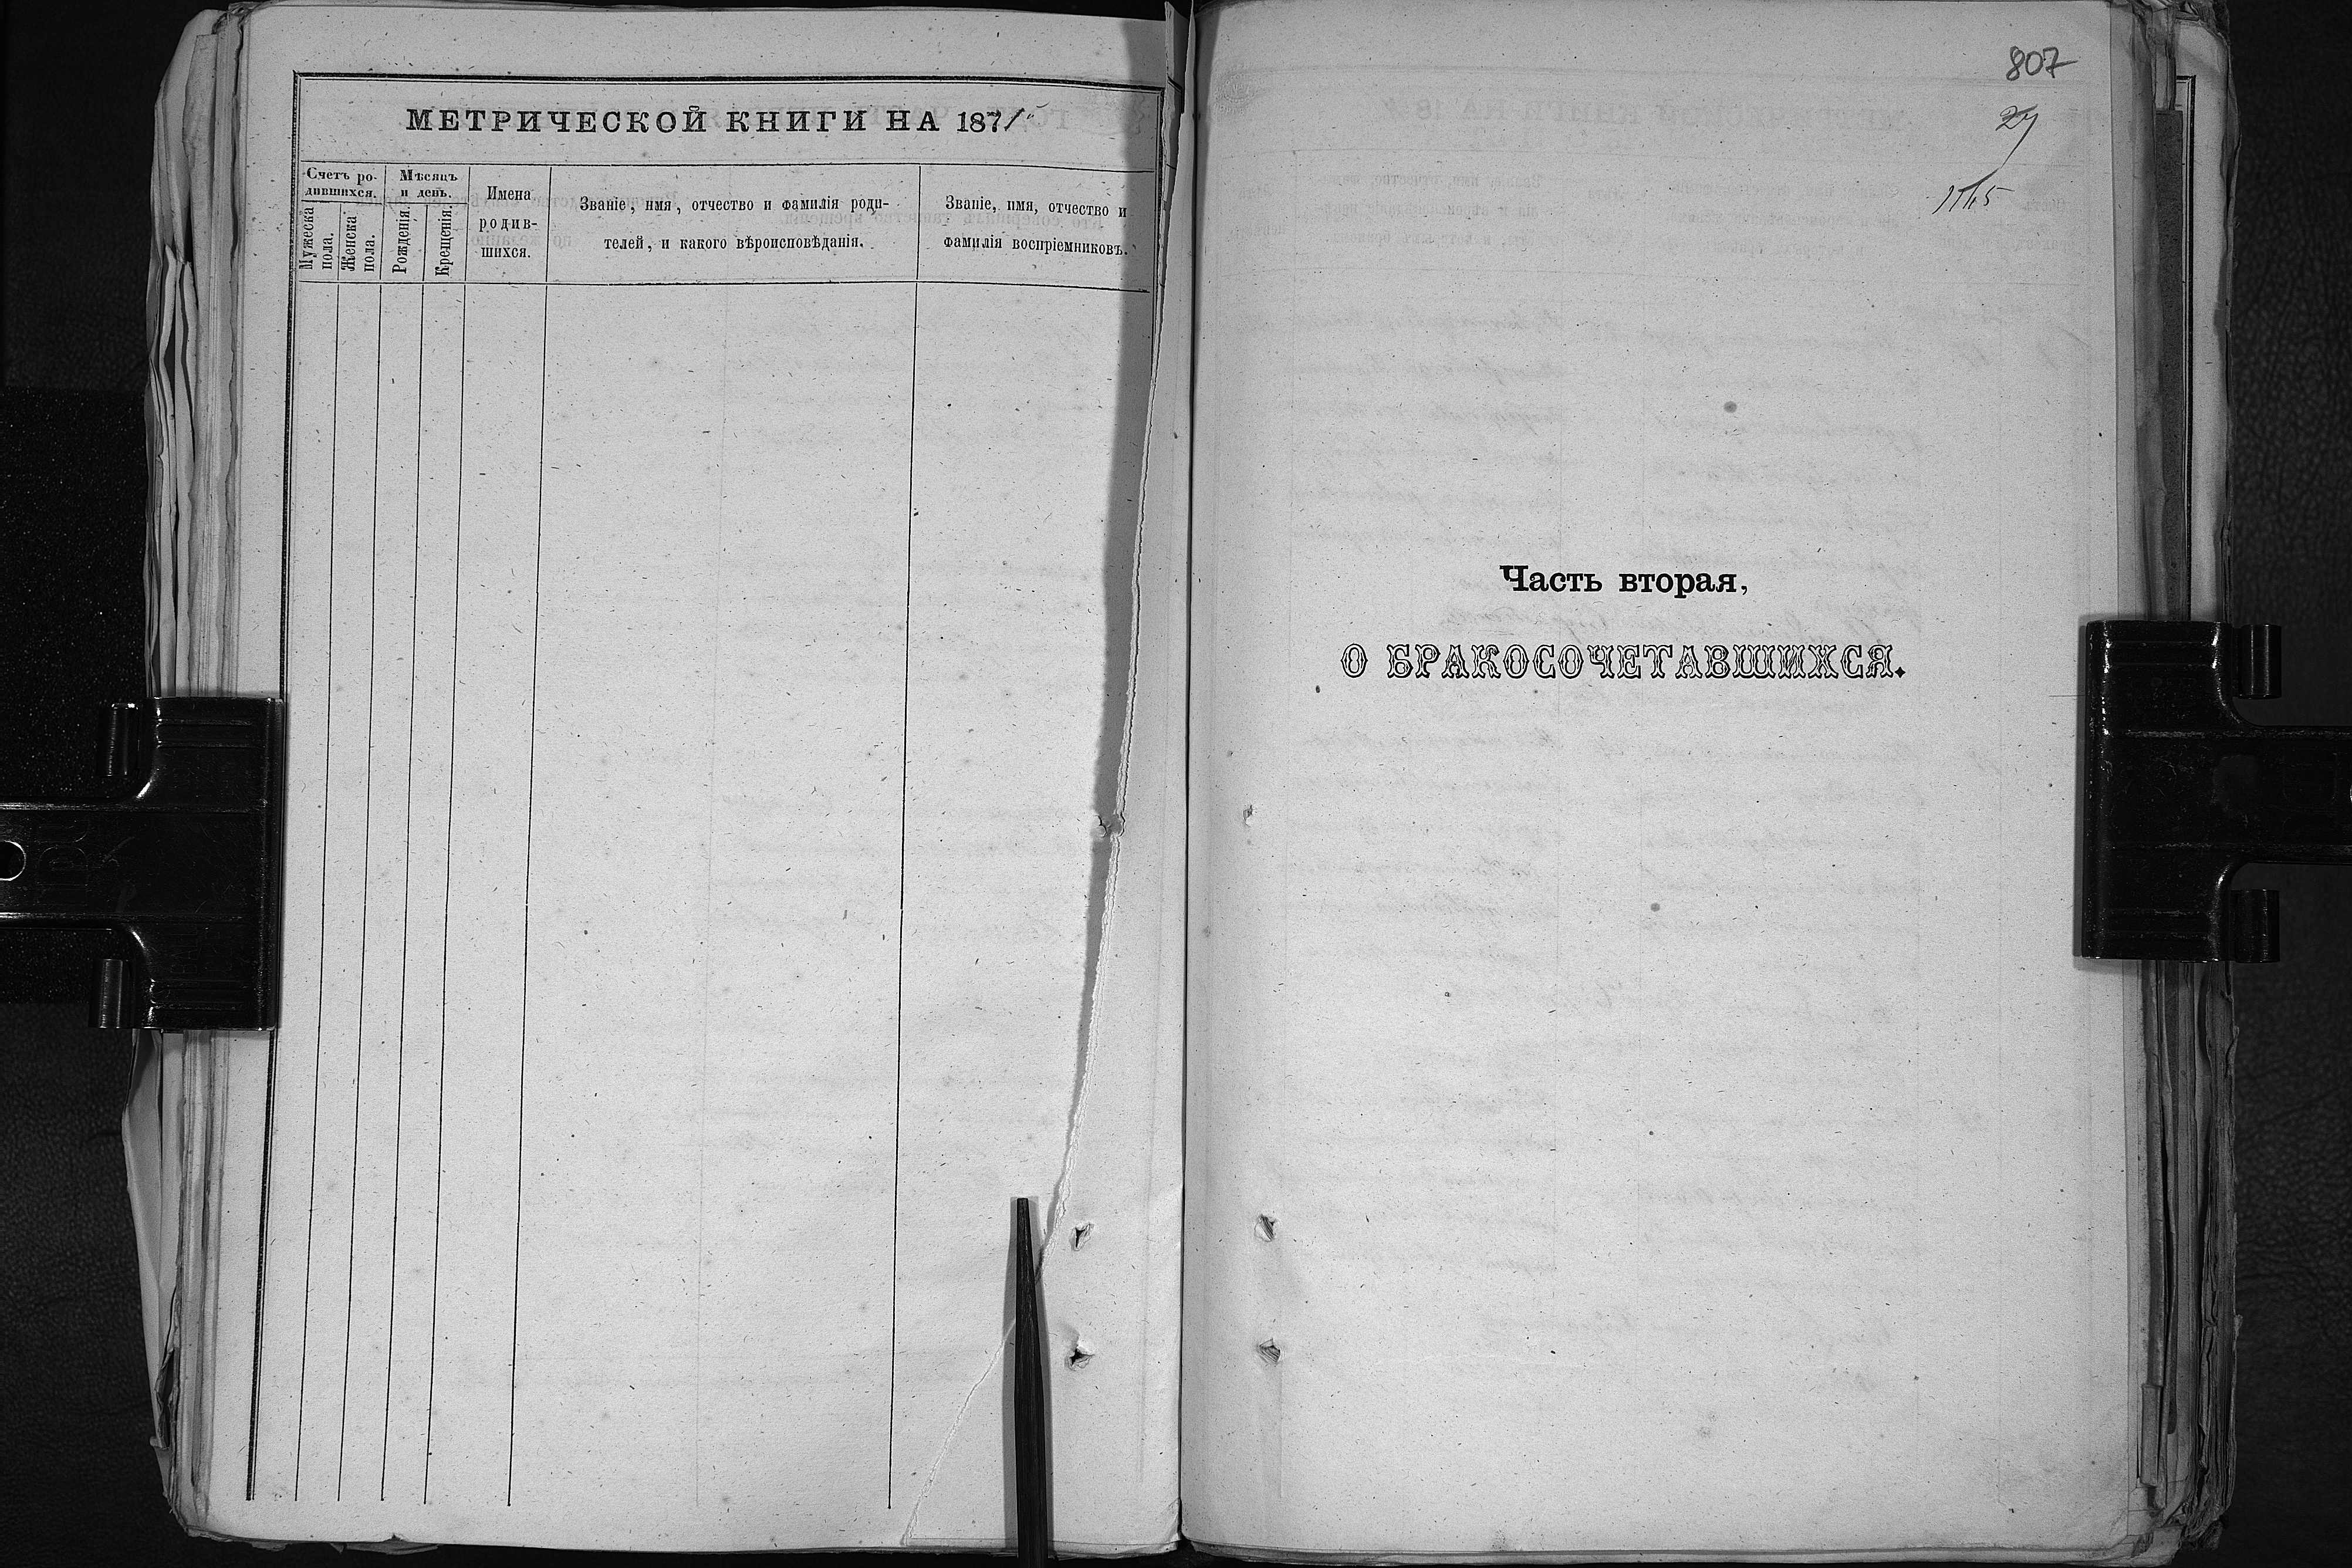 МЕТРИЧЕСКОЙ КНИГИ НА 1871
Счетъ ро-
дившихся.
Мѣсяцъ
и день.
Мужеска
пола.
Женска
пола.
Рожденія.
Крещенія.
Имена
родив-
шихся.
Званіе, имя, отчество и фамилія роди-
телей, и какого вѣроисповѣданія.
Званіе, имя, отчество и
фамилія воспріемниковъ.
807
27
Часть вторая,
О БРАКОСОЧЕТАВШИХСЯ.